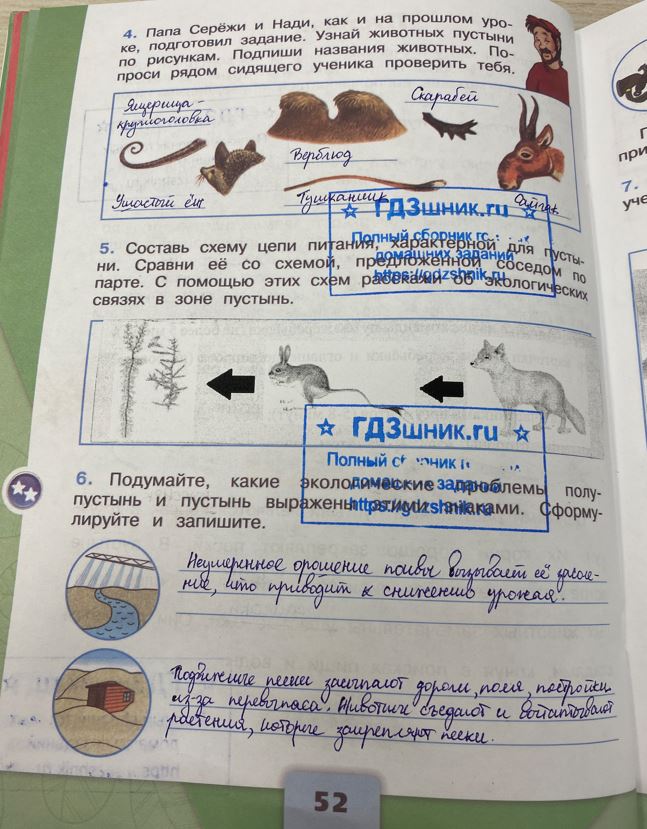 4. Папа Серёжи и Нади, как и на прошлом уро-
ке, подготовил задание. Узнай животных пустыни
по рисункам. Подпиши названия животных. По-
проси рядом сидящего ученика проверить тебя.
Ящерица-
круглоголовка
Скарабей
Верблюд
Ушастый ёж
Тушканчик
Сайгак
ГДЗшник.ru
Полный сборник
домашних заданий
https://gdzshnik.ru
5. Составь схему цепи питания, характерной для пусты-
ни. Сравни её со схемой, предложенной соседом по
парте. С помощью этих схем расскажи об экологических
связях в зоне пустынь.
ГДЗшник.ru
Полный
домашних заданий
https://gdzshnik.ru
6. Подумайте, какие экологические проблемы полу-
пустынь и пустынь выражены этими знаками. Сформу-
лируйте и запишите.
Неумеренное орошение почвы вызывает её засоле-
ние, что приводит к снижению урожая.
Подвижные пески засыпают дороги, поля, постройки
из-за перевыпаса. Животные съедают и вытаптывают
растения, которые закрепляют пески.
52
при
7.
уче